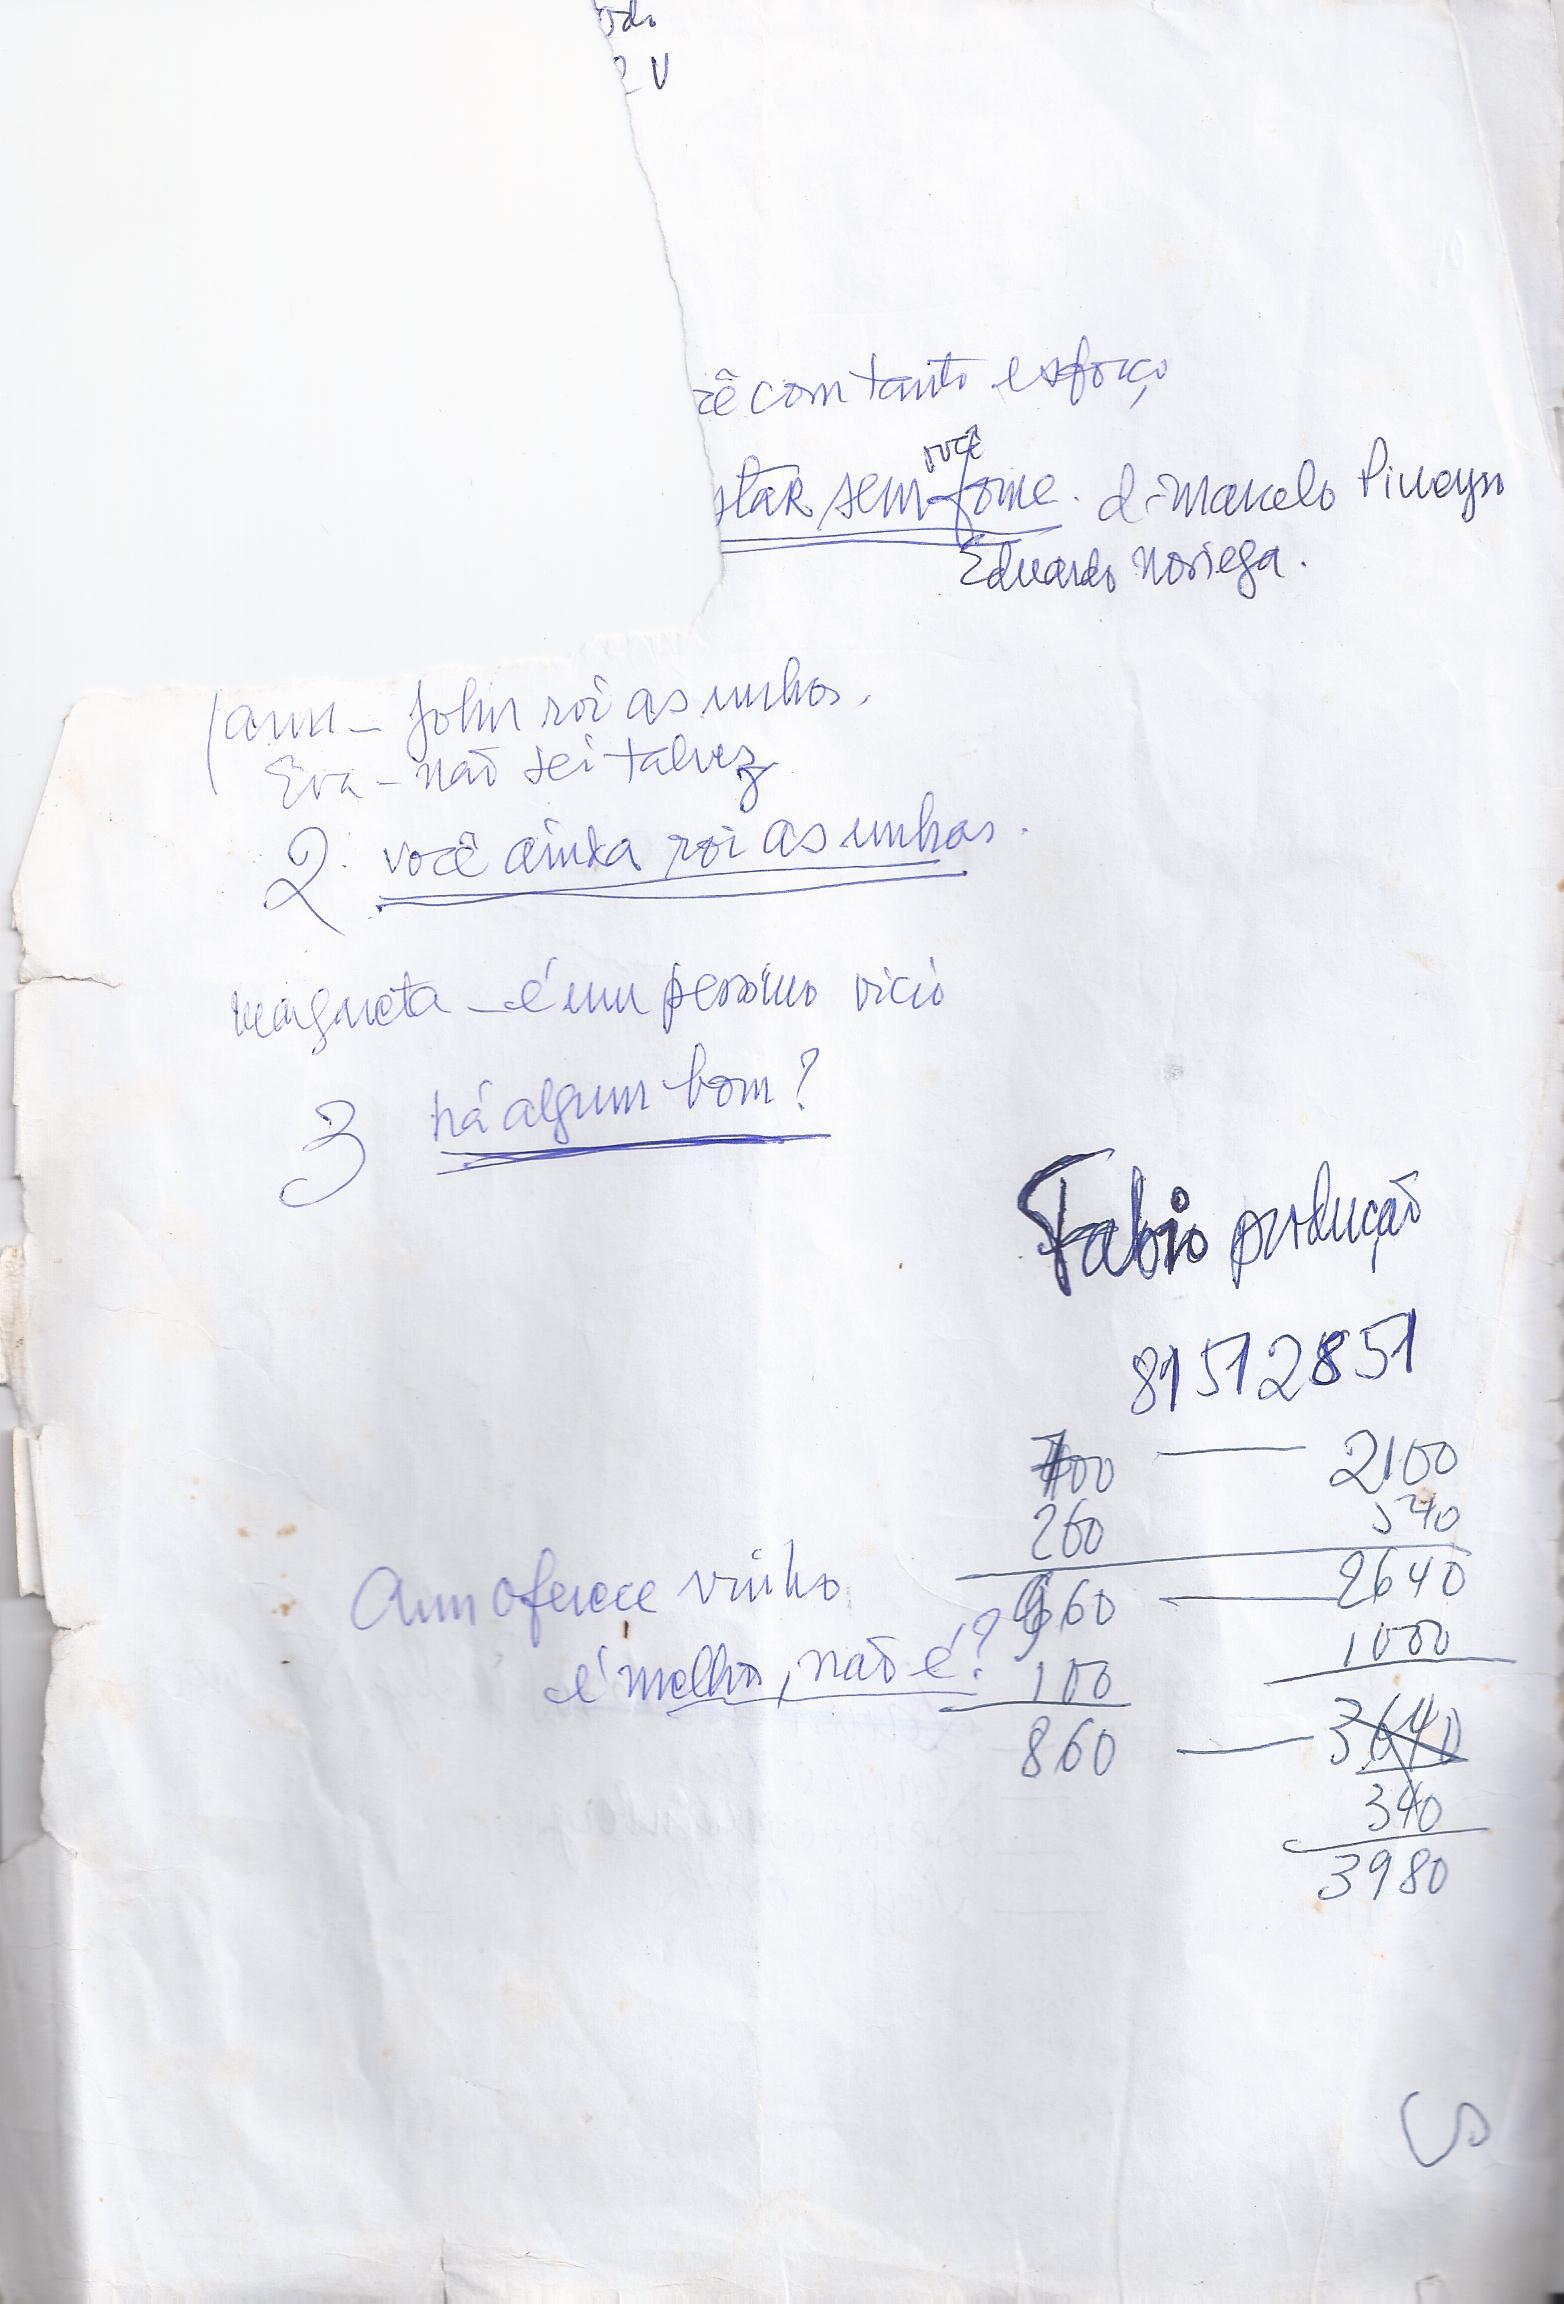 cê com tanto esforço
você
star sem fome. d. Marcelo Pineyro
Eduardo Noriega.
ann – John roi as unhas.
Eva – não sei talvez
2. você ainda roi as unhas.
margareta – é um pessimo vicio
3 há algum bom?
Fabio produção
81512851
700 — 2100
260 540
960 — 2640
100 1000
860 — 3640
340
3980
Ann oferece vinho
é melhor, não é?